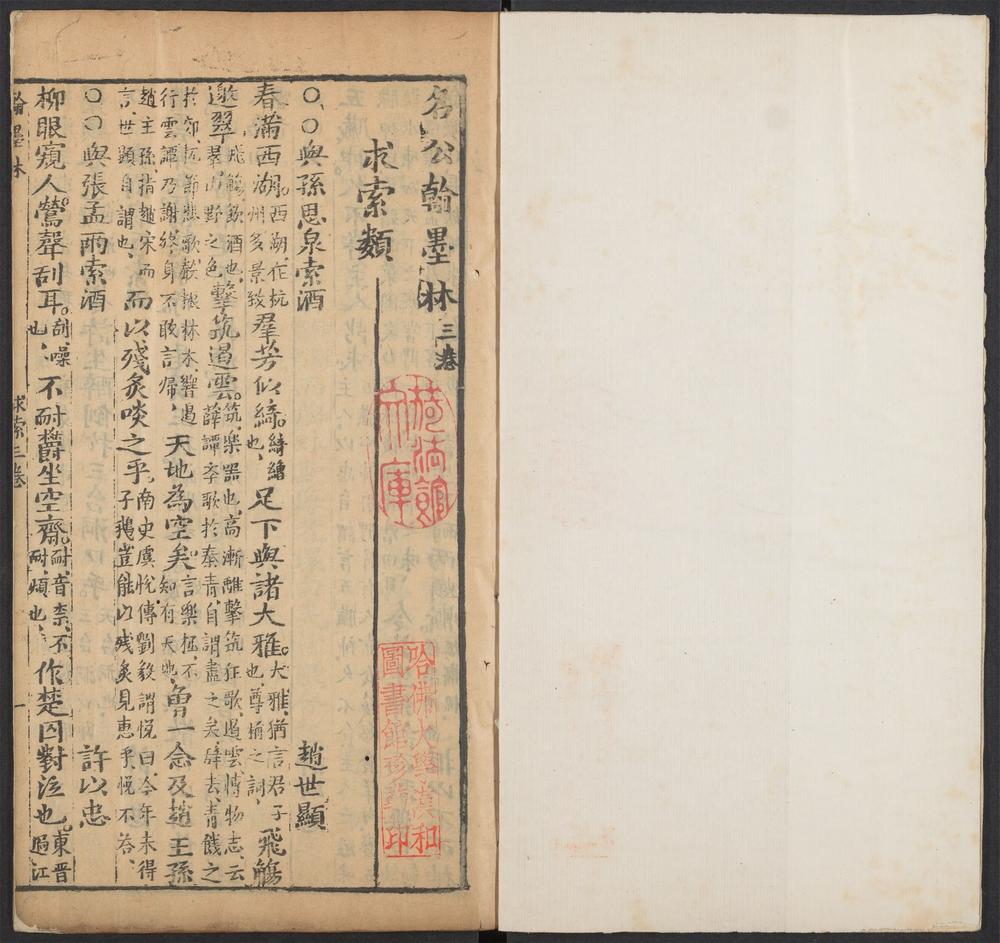 名公翰墨林 三卷
求索類
○○與孫思泉索酒 趙世顯
春滿西湖。西湖、在杭州多景致羣芳似綺。綺繒也、足下與諸大雅。大雅、猶言君子也、尊稱之詞、飛觴
邀翠。飛觴、飲酒也、翠、山野之色、擊筑遏雲。筑、樂器也、高漸離擊筑狂歌、遏雲、博物志、云薛譚卒歌於秦青、自謂盡之矣、辭去、青餞之
於郊、撫節悲歌、聲振林木、響遏行雲、譚乃謝終身不敢言歸、天地為空矣。言樂極、不知有天地、曾一念及趙王孫
趙王孫、指趙宋而言、世顯自謂也、而以殘炙啖之乎。南史虞悅傳劉毅謂悅曰、今年未得子鵝豈能以殘炙見惠乎、悅不答、
○○與張孟雨索酒 許以忠
柳眼窺人。鶯聲刮耳。刮、噪也、不耐欝坐空齋。耐、音柰、不耐、煩也、作楚囚對泣也。東晋過江
翰墨林 求索三卷 一
荷法館文庫
哈佛大學漢和圖書館珍藏印